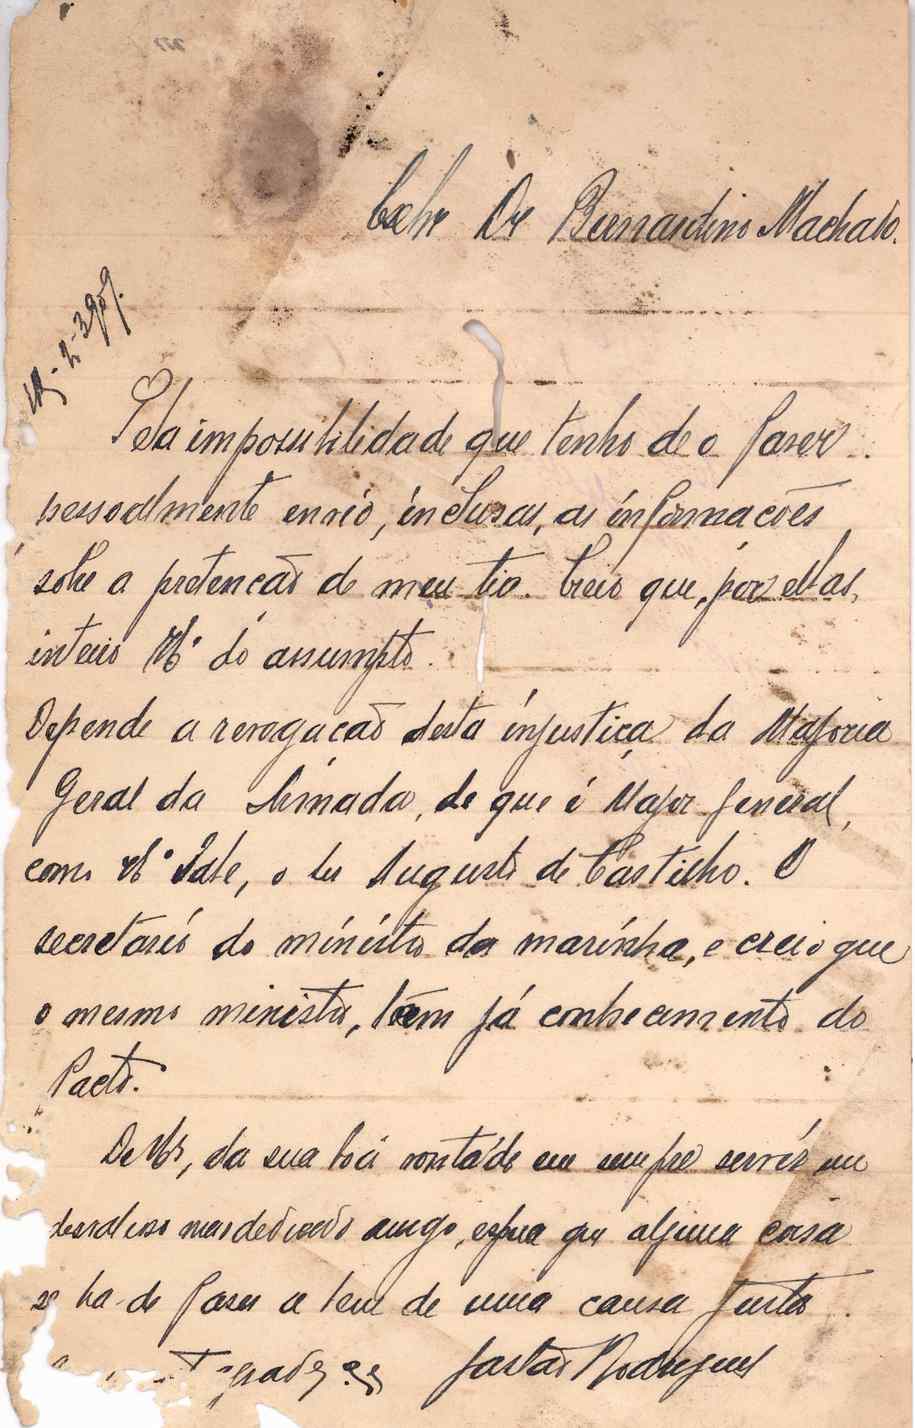 Exmo Dr Bernardino Machado.
18-2-909.
Pela impossibilidade que tenho de o faser
pessoalmente envio, inclusas, as informações
sobre a pretenção de meu tio. Creio que, por ellas,
inteiro Vª do assumpto.
Depende a revogação desta injustiça da Majoria
Geral da Armada, de que é Major General,
como Vª Sabe, o Augusto de Castilho. O
secretario do ministro da marinha, e creio que
o mesmo ministro, teem já conhecimento do
facto.
De Vª, da sua boa vontade em sempre servir um
desvalioso mas dedicado amigo, espera que alguma coisa
se ha-de faser a bem de uma causa justa.
Gastão Rodrigues